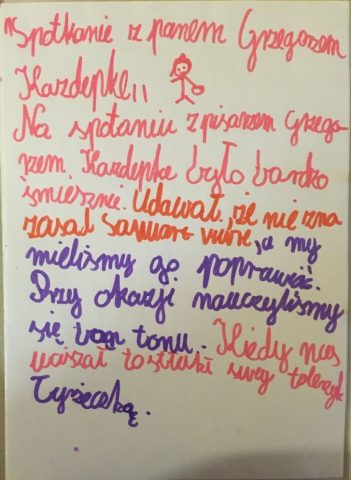 "Spotkanie z panem Grzegorzem
Kazdepke,,
Na spotaniu z pisarzem Grzego-
rzem Kazdepke było bardzo
śmiesznie. Udawał, że nie zna
zasad Savuare vivre, a my
mieliśmy go poprawiać.
Przy okazji nauczyliśmy
się bon tonu. Kiedy nas
uciszał to stukał swój talerzyk
łyżeczką.